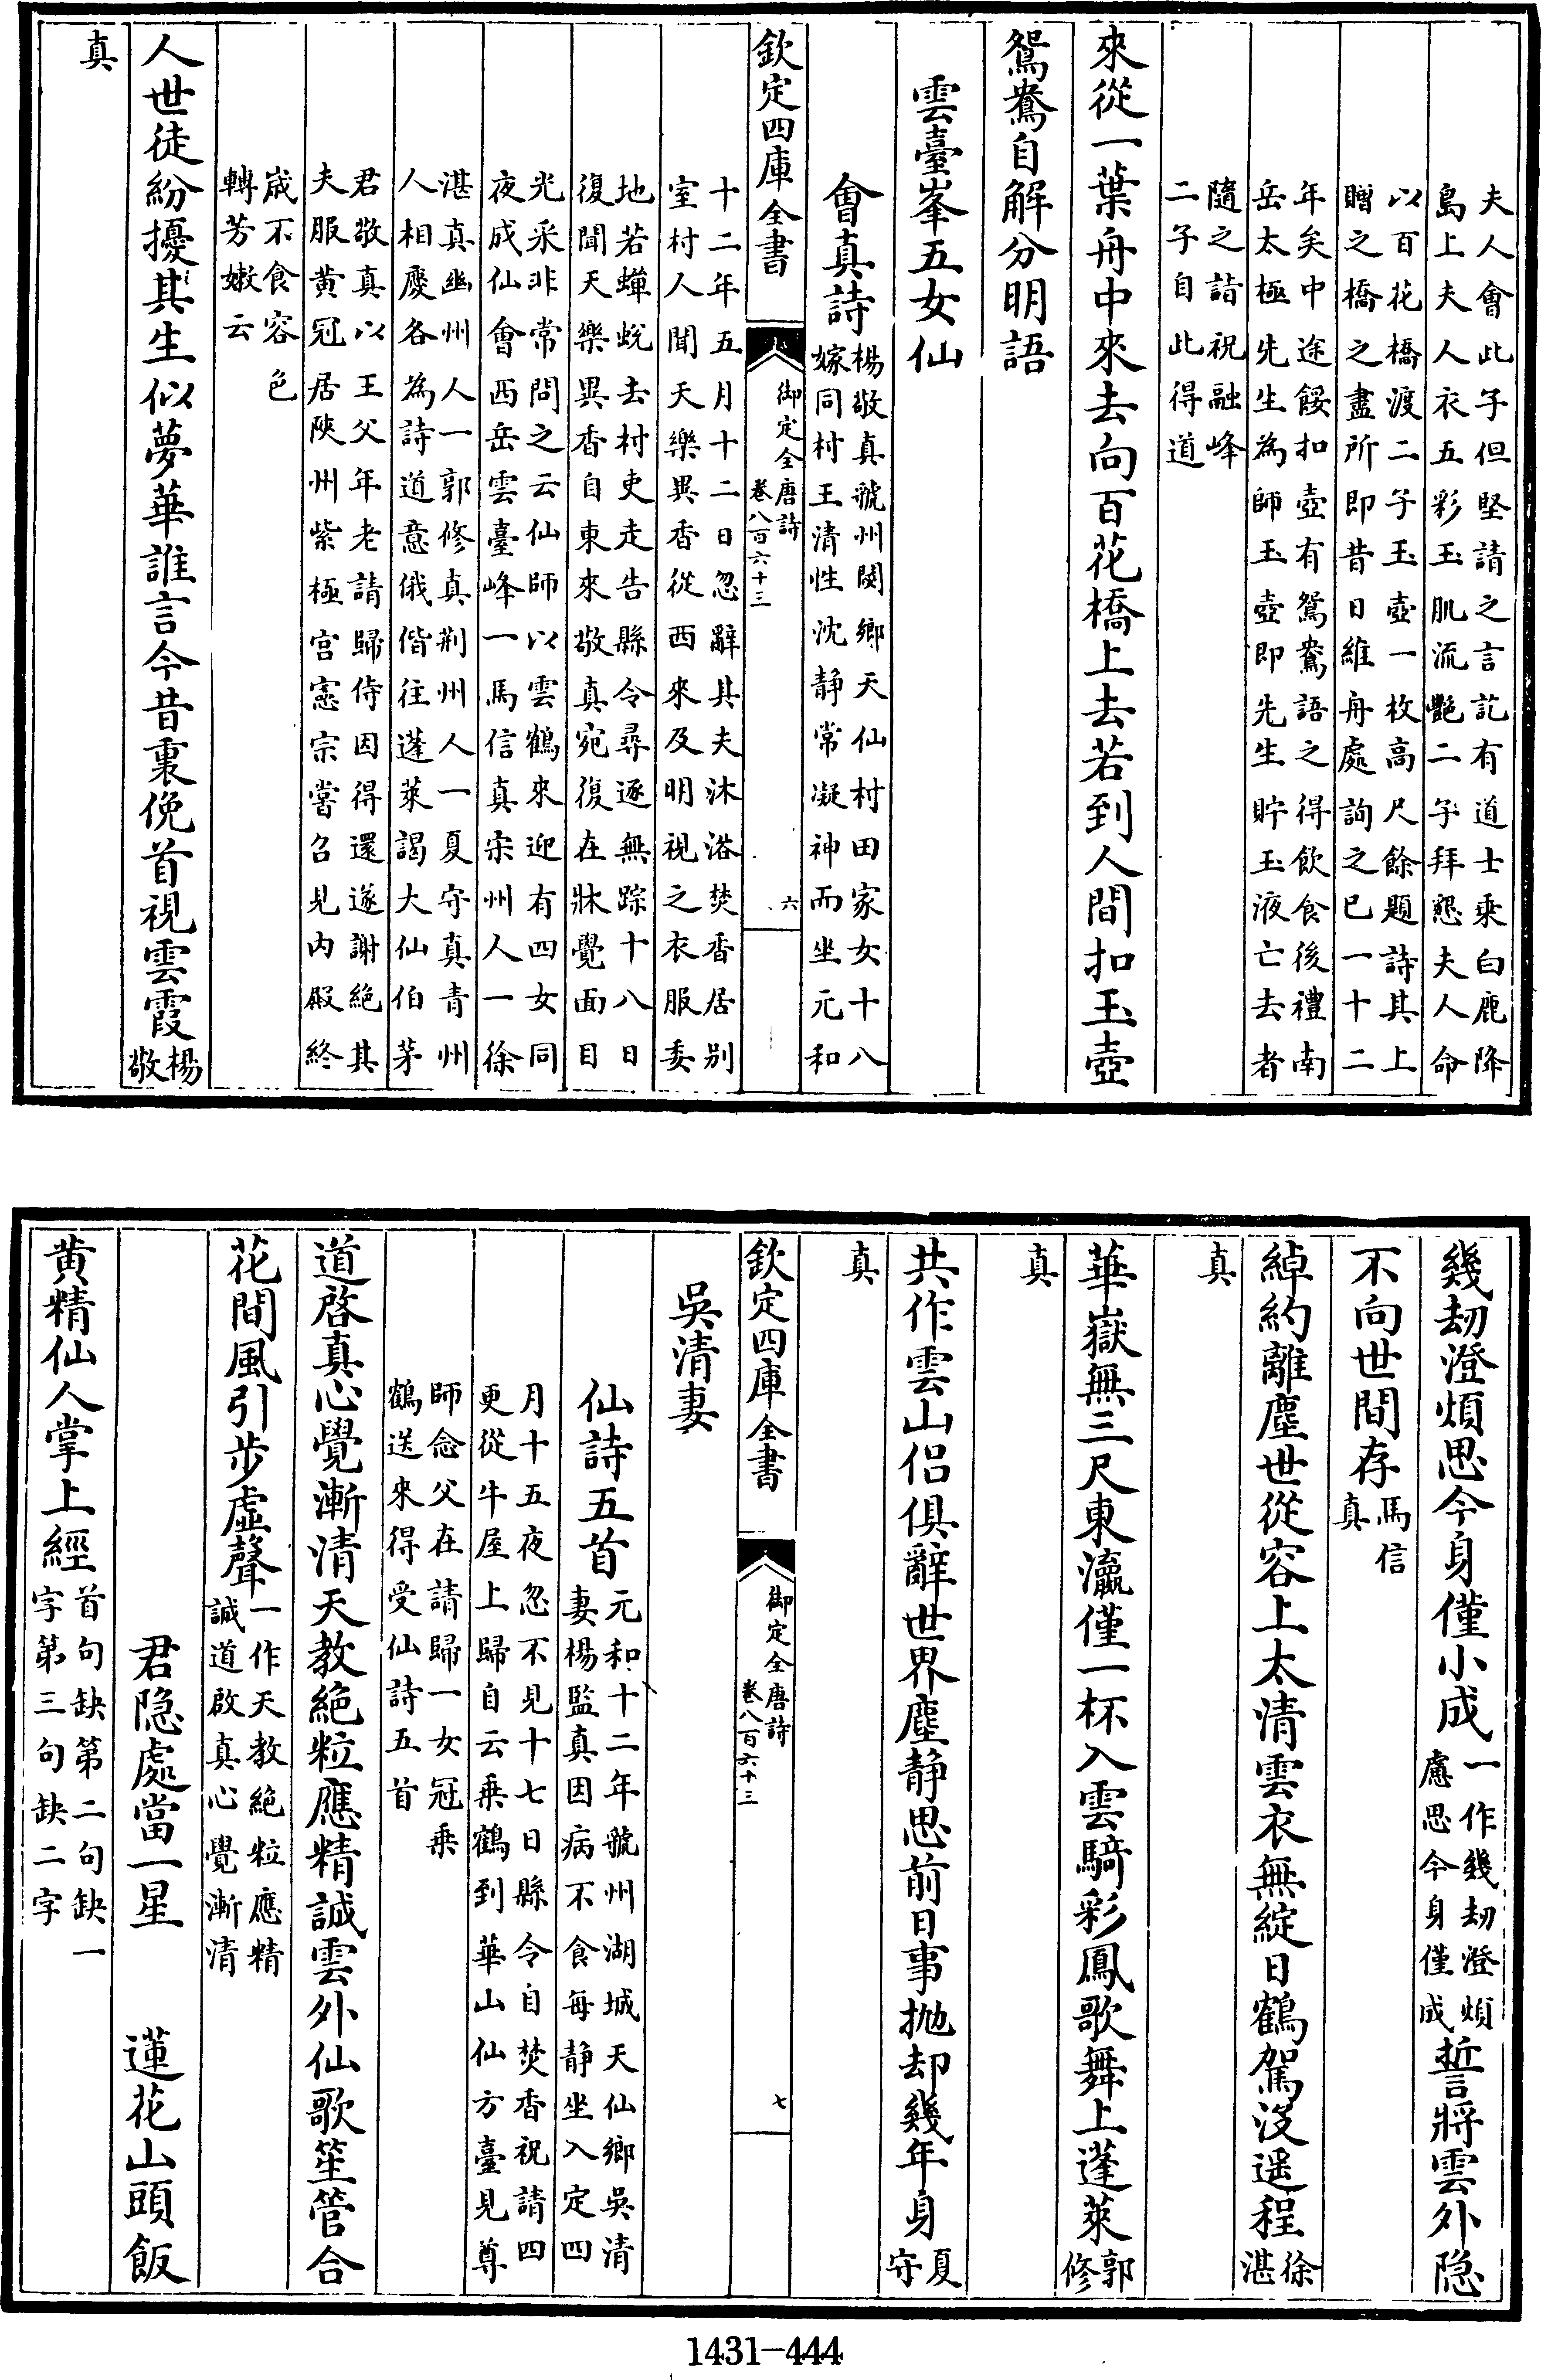 夫人會此子但堅請之言訖有道士乘白鹿降
島上夫人衣五彩玉肌流艷二子拜懇夫人命
以百花橋渡二子玉壺一枚高尺餘題詩其上
贈之橋之盡所即昔日維舟處詢之已一十二
年矣中途餒扣壺有鴛鴦語之得飲食後禮南
岳太極先生為師玉壺即先生貯玉液亡去者
隨之詣祝融峰
二子自此得道
來從一葉舟中來去向百花橋上去若到人間扣玉壺
鴛鴦自解分明語
雲臺峯五女仙
會真詩
楊敬真虢州閿鄉天仙村田家女十八
嫁同村王清性沈静常凝神而坐元和
欽定四庫全書
御定全唐詩
卷八百六十三
六
十二年五月十二日忽辭其夫沐浴焚香居别
室村人聞天樂異香從西來及明視之衣服委
地若蟬蛻去村吏走告縣令尋逐無踪十八日
復聞天樂異香自東來敬真宛復在牀覺面目
光采非常問之云仙師以雲鶴來迎有四女同
夜成仙會西岳雲臺峰一馬信真宋州人一徐
湛真幽州人一郭修真荆州人一夏守真青州
人相慶各為詩道意俄偕往蓬萊謁大仙伯茅
君敬真以王父年老請歸侍因得還遂謝絶其
夫服黄冠居陜州紫極宫憲宗嘗召見内殿終
歲不食容色
轉芳嫰云
人世徒紛擾其生似夢華誰言今昔裏俛首視雲霞
楊
敬
真
幾劫澄煩思今身僅小成
一作幾劫澄煩
慮思今身僅成
誓將雲外隐
不向世間存
馬信
真
綽約離塵世從容上太清雲衣無綻日鶴駕没遥程
徐
湛
真
華嶽無三尺東瀛僅一杯入雲騎彩鳳歌舞上蓬萊
郭
修
真
共作雲山侣俱辭世界塵静思前日事抛却幾年身
夏
守
真
欽定四庫全書
御定全唐詩
卷八百六十三
七
吳清妻
仙詩五首
元和十二年虢州湖城天仙鄉吳清
妻楊監真因病不食每静坐入定四
月十五夜忽不見十七日縣令自焚香祝請四
更從牛屋上歸自云乘鶴到華山仙方臺見尊
師念父在請歸一女冠乘
鶴送來得受仙詩五首
道啓真心覺漸清天教絶粒應精誠雲外仙歌笙管合
花間風引步虚聲
一作天教絶粒應精
誠道啟真心覺漸清
君隐處當一星　蓮花山頭飯
黄精仙人掌上經
首句缺第二句缺一
字第三句缺二字
1431-444